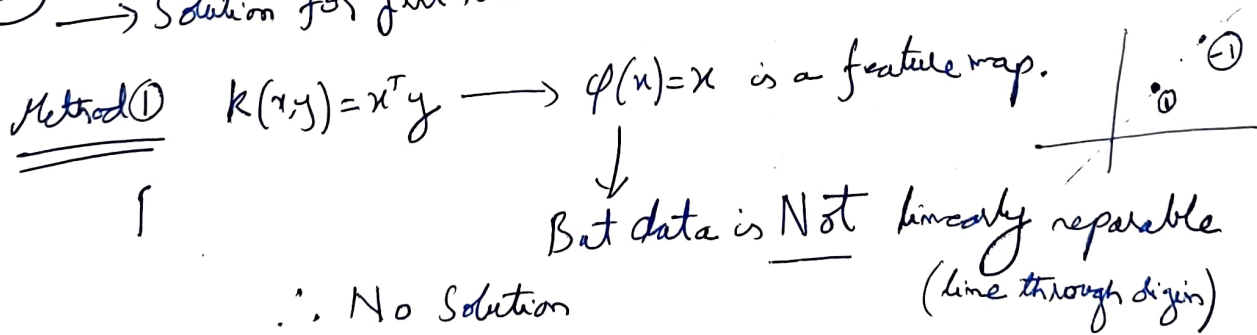 → Solution for
Method ① k(x,y) = xᵀy → φ(x)=x is a feature map.
-1
1
But data is Not linearly separable
(line through origin)
∴ No Solution